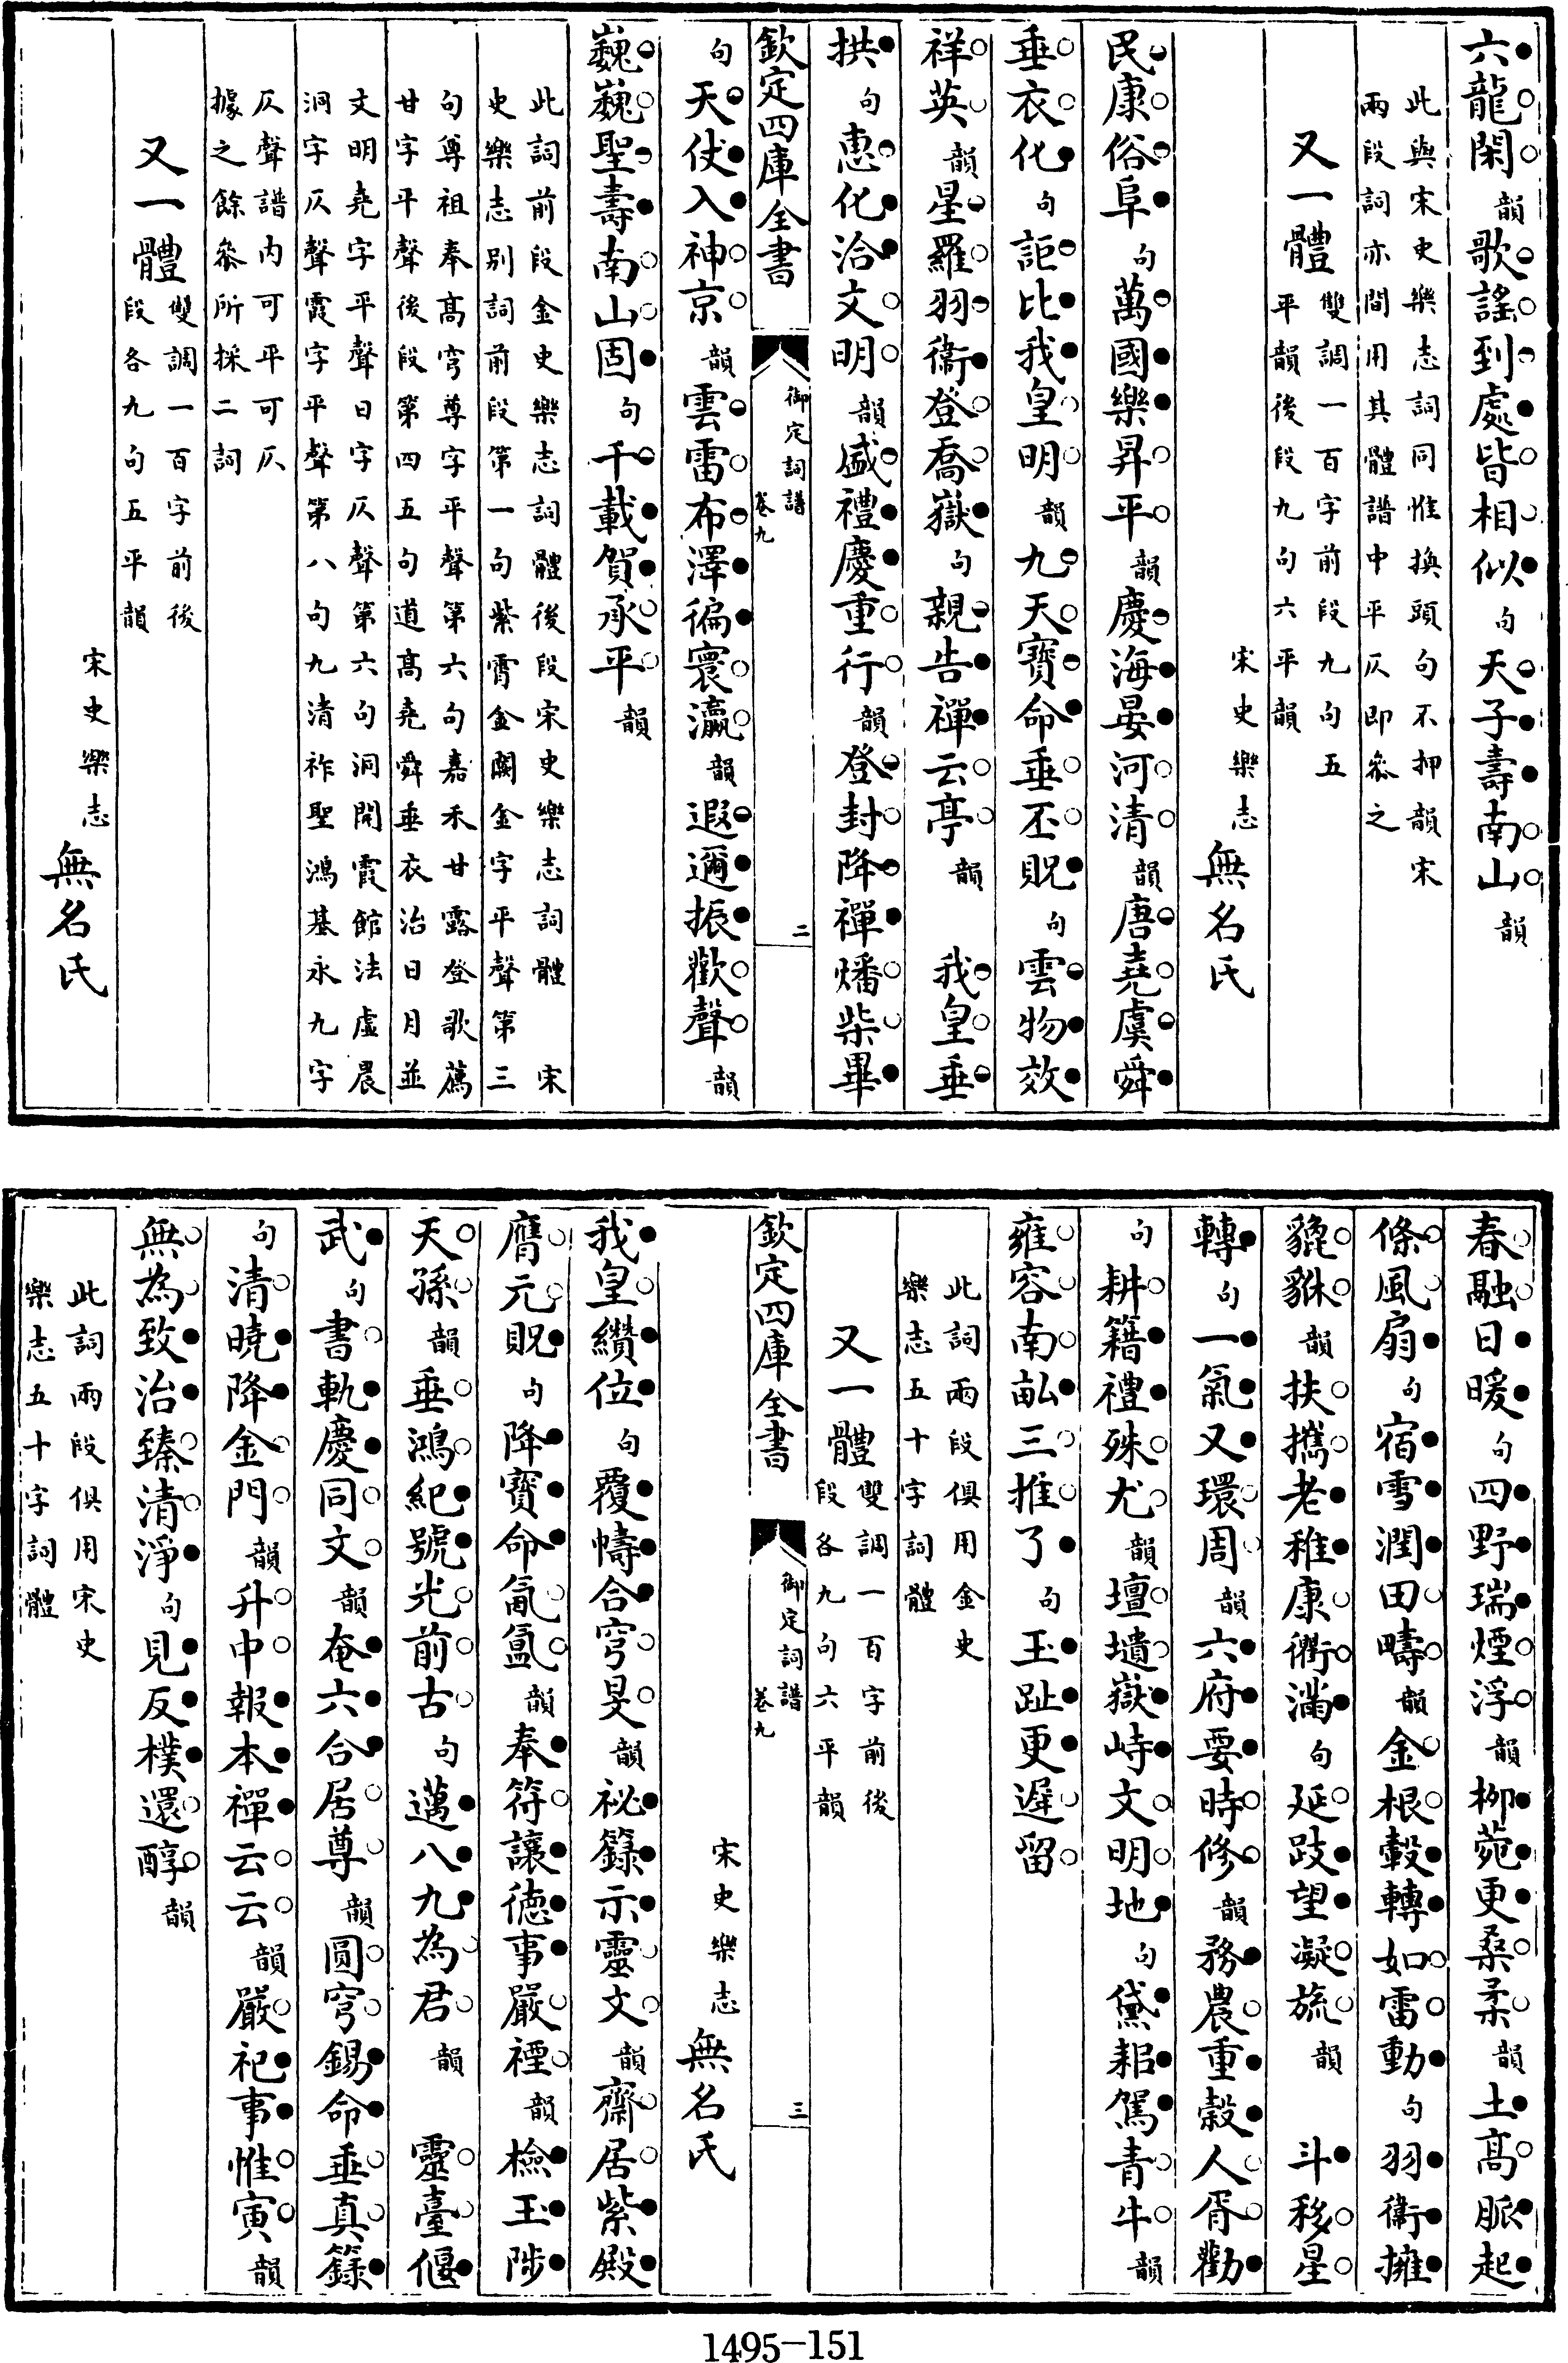 六龍閑韻歌謠到處皆相似句天子壽南山韻
此與宋史樂志詞同惟換頭句不押韻宋
兩段詞亦間用其體譜中平仄即叅之
又一體雙調一百字前段九句五
平韻後段九句六平韻
宋史樂志無名氏
民康俗阜句萬國樂昇平韻慶海晏河清韻唐堯虞舜
垂衣化句詎比我皇明韻九天寶命垂丕貺句雲物效
祥英韻星羅羽衞登喬嶽句親告禪云亭韻我皇垂
拱句惠化洽文明韻盛禮慶重行韻登封降禪燔柴畢
欽定四庫全書
御定詞譜
卷九
二
句天仗入神京韻雲雷布澤徧寰瀛韻遐邇振歡聲韻
巍巍聖壽南山固句千載賀承平韻
此詞前段金史樂志詞體後段宋史樂志詞體宋
史樂志別詞前段第一句紫霄金闕金字平聲第三
句尊祖奉髙穹尊字平聲第六句嘉禾甘露登歌薦
甘字平聲後段第四五句道髙堯舜垂衣治日月並
文明堯字平聲日字仄聲第六句洞開霞館法虛晨
洞字仄聲霞字平聲第八句九清祚聖鴻基永九字
仄聲譜內可平可仄
據之餘叅所採二詞
又一體雙調一百字前後
段各九句五平韻
宋史樂志無名氏
春融日暖句四野瑞煙浮韻柳菀更桑柔韻土髙脈起
條風扇句宿雪潤田疇韻金根轂轉如雷動句羽衞擁
貔貅韻扶攜老稚康衢滿句延跂望凝旒韻斗移星
轉句一氣又環周韻六府要時修韻務農重穀人胥勸
句耕籍禮殊尤韻壇壝嶽峙文明地句黛耜駕青牛韻
雍容南畝三推了句玉趾更遲留
此詞兩段俱用金史
樂志五十字詞體
又一體雙調一百字前後
段各九句六平韻
欽定四庫全書
御定詞譜
卷九
三
宋史樂志無名氏
我皇纘位句覆幬合穹旻韻祕籙示靈文韻齋居紫殿
膺元貺句降寶命氤氳韻奉符讓德事嚴禋韻檢玉陟
天孫韻垂鴻紀號光前古句邁八九為君韻靈臺偃
武句書軌慶同文韻奄六合居尊韻圓穹錫命垂真籙
句清曉降金門韻升中報本禪云云韻嚴祀事惟寅韻
無為致治臻清淨句見反樸還醇韻
此詞兩段俱用宋史
樂志五十字詞體
1495-151